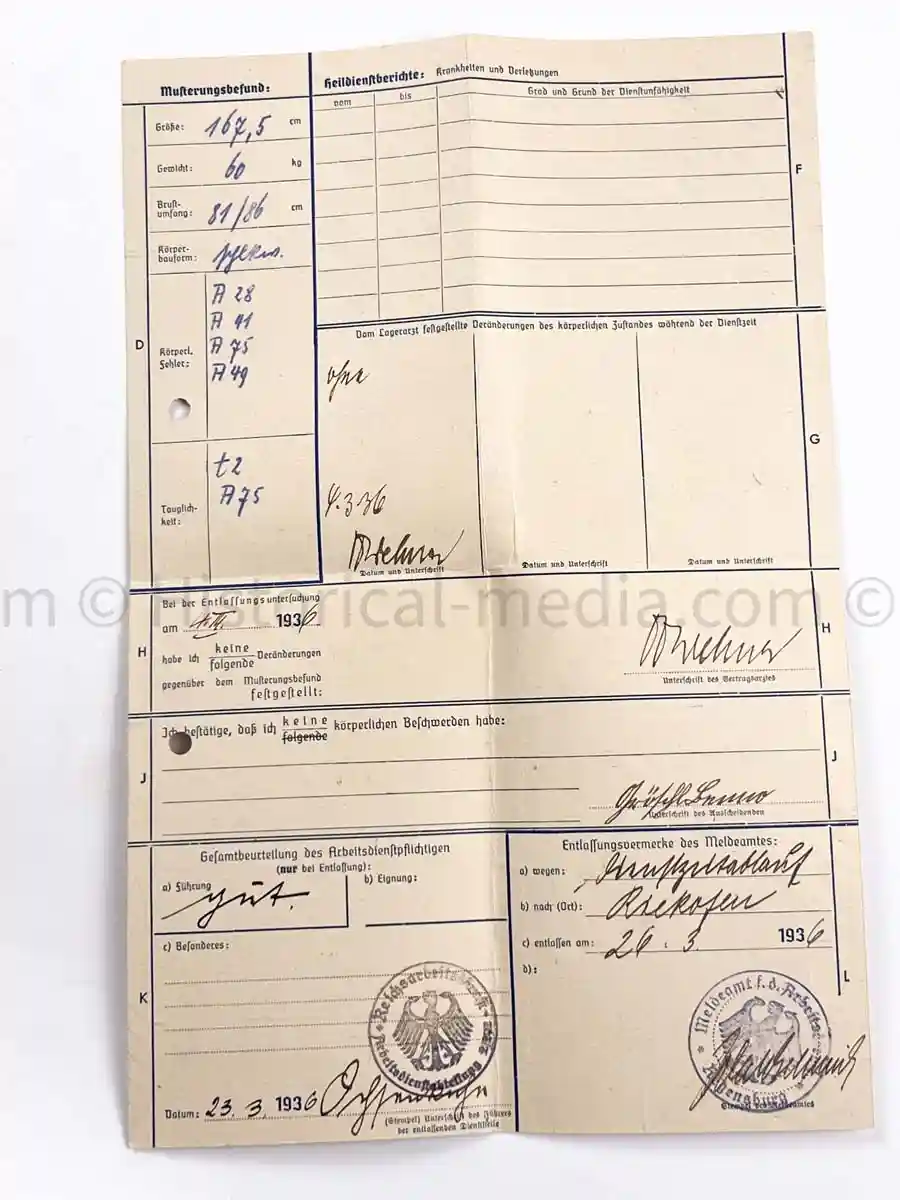 Musterungsbefund:
Größe: 167,5 cm
Gewicht: 60 kg
Brust-
umfang: 81/86 cm
Körper-
bauform:
Körperl.
Fehler:
A 28
A 41
A 75
A 49
Tauglich-
keit:
t2
A 75
D
Heildienstberichte: Krankheiten und Verletzungen
vom bis Grad und Grund der Dienstunfähigkeit
F
Vom Lagerarzt festgestellte Veränderungen des körperlichen Zustandes während der Dienstzeit
ohne
4.3.36
Datum und Unterschrift
Datum und Unterschrift
Datum und Unterschrift
G
© Historical-media.com ©
Bei der Entlassungsuntersuchung
am 4.III. 1936
habe ich keine
folgende Veränderungen
gegenüber dem Musterungsbefund
festgestellt:
Unterschrift des Vertragsarztes
H
H
Ich bestätige, daß ich keine
folgende körperlichen Beschwerden habe:
Gröschl Benno
Unterschrift des Ausscheidenden
J
J
Gesamtbeurteilung des Arbeitsdienstpflichtigen
(nur bei Entlassung):
a) Führung
gut.
b) Eignung:
c) Besonderes:
K
Reichsarbeitsdienst
Arbeitsdienstabteilung
Datum: 23. 3. 1936
(Stempel) Unterschrift des Führers
der entlassenden Dienststelle
Entlassungsvermerke des Meldeamtes:
a) wegen: Dienstzeitablauf
b) nach (Ort): Riekofen
c) entlassen am: 26. 3. 1936
d):
L
Meldeamt f. d. Arbeits
Regensburg
Stempel des Meldeamtes